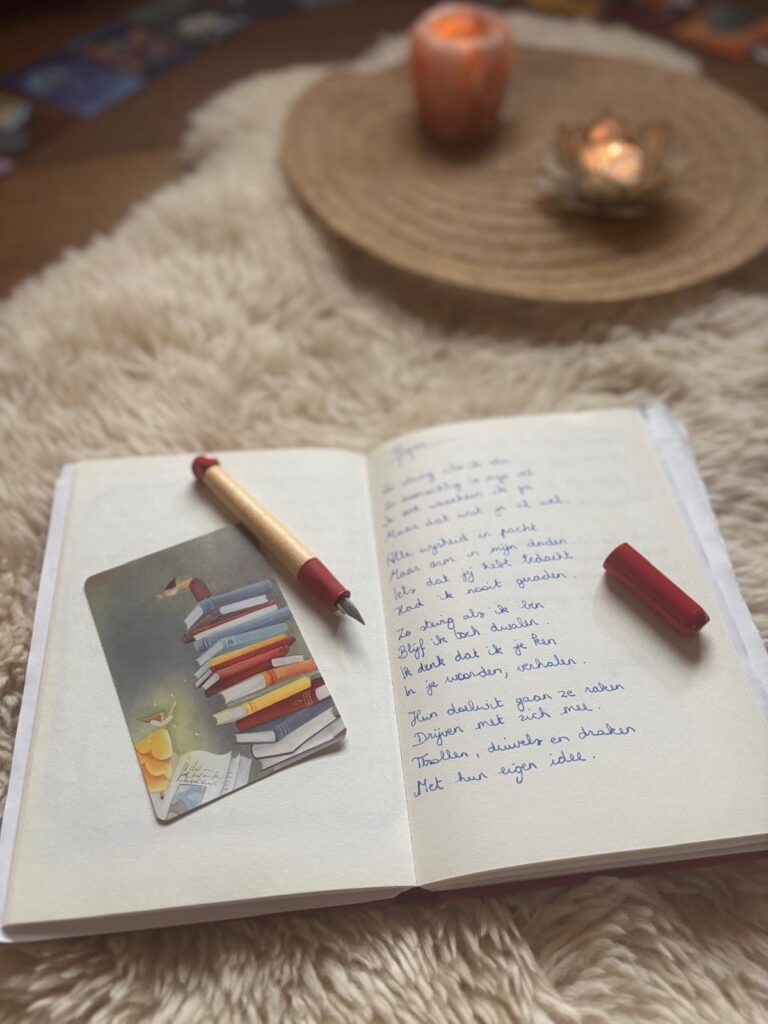 Zo stevig als ik
Zo is mijn
Ik waarheen ik ga
Maar dat wist je al wel.
Alle wijsheid in pacht
Maar arm in mijn daden
Iets dat jij hebt bedacht
Had ik nooit geraden.
Zo stevig als ik ben
Blijf ik toch dwalen.
Ik denk dat ik je ken
In je woorden, verhalen.
Hun doelwit gaan ze raken
Drijven met zich mee.
Trollen, duivels en draken
Met hun eigen idee.